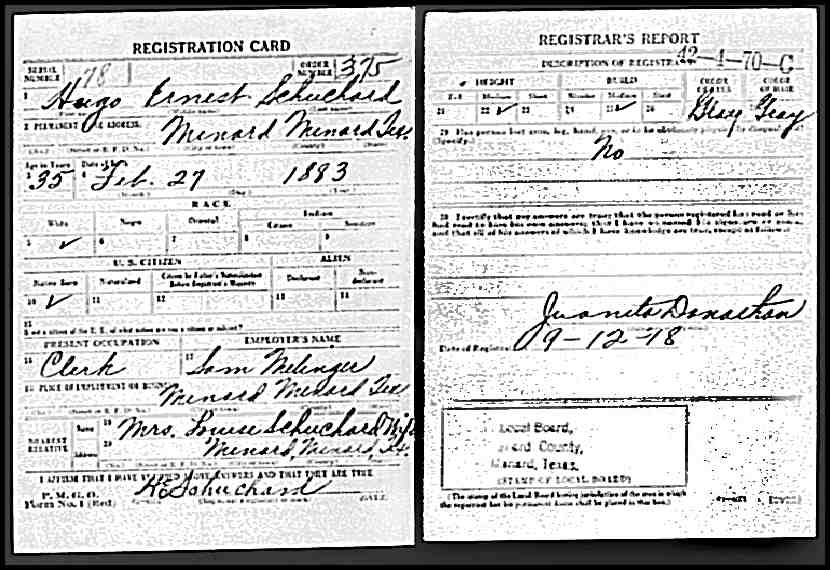 REGISTRATION CARD
SERIAL NUMBER 78
ORDER NUMBER 375
1 Hugo Ernest Schuchard
2 PERMANENT HOME ADDRESS: Menard Menard Tex.
Age in Years Date of Birth
3 35 4 Feb. 27 1883
RACE
White Negro Oriental Indian
Citizen
5 ✓ 6 7 8 9
U. S. CITIZEN ALIEN
Native Born Naturalized Citizen by Father's Naturalization Before Registrant's Majority Declarant Non-declarant
10 ✓ 11 12 13 14
15
If not a citizen of the U. S., of what nation are you a citizen or subject?
PRESENT OCCUPATION EMPLOYER'S NAME
16 Clerk 17 Sam
18 PLACE OF EMPLOYMENT OR BUSINESS:
Menard Menard Tex
NEAREST RELATIVE
Name 19 Mrs. Louise Schuchard Wife
Address 20 Menard, Menard, Tex.
I AFFIRM THAT I HAVE VERIFIED ABOVE ANSWERS AND THAT THEY ARE TRUE
P. M. G. O.
Form No. 1 (Red)
H E Schuchard
REGISTRAR'S REPORT
42-1-70-C
DESCRIPTION OF REGISTRANT
HEIGHT BUILD COLOR OF EYES COLOR OF HAIR
Tall Medium Short Slender Medium Stout
21 22 ✓ 23 24 25 ✓ 26 Gray Gray
29 Has person lost arm, leg, hand,
(Specify.)
No
30 I certify that my answers are true; that the person registered has read or has
had read to him his own answers; that I have witnessed his signature or mark,
and that all of his answers of which I have knowledge are true, except as follows:
Juanita
Date of Registration 9-12-18
Local Board,
County,
Menard, Texas.
(STAMP OF LOCAL BOARD)
(The stamp of the Local Board having jurisdiction of the area in which
the registrant has his permanent home shall be placed in this box.)